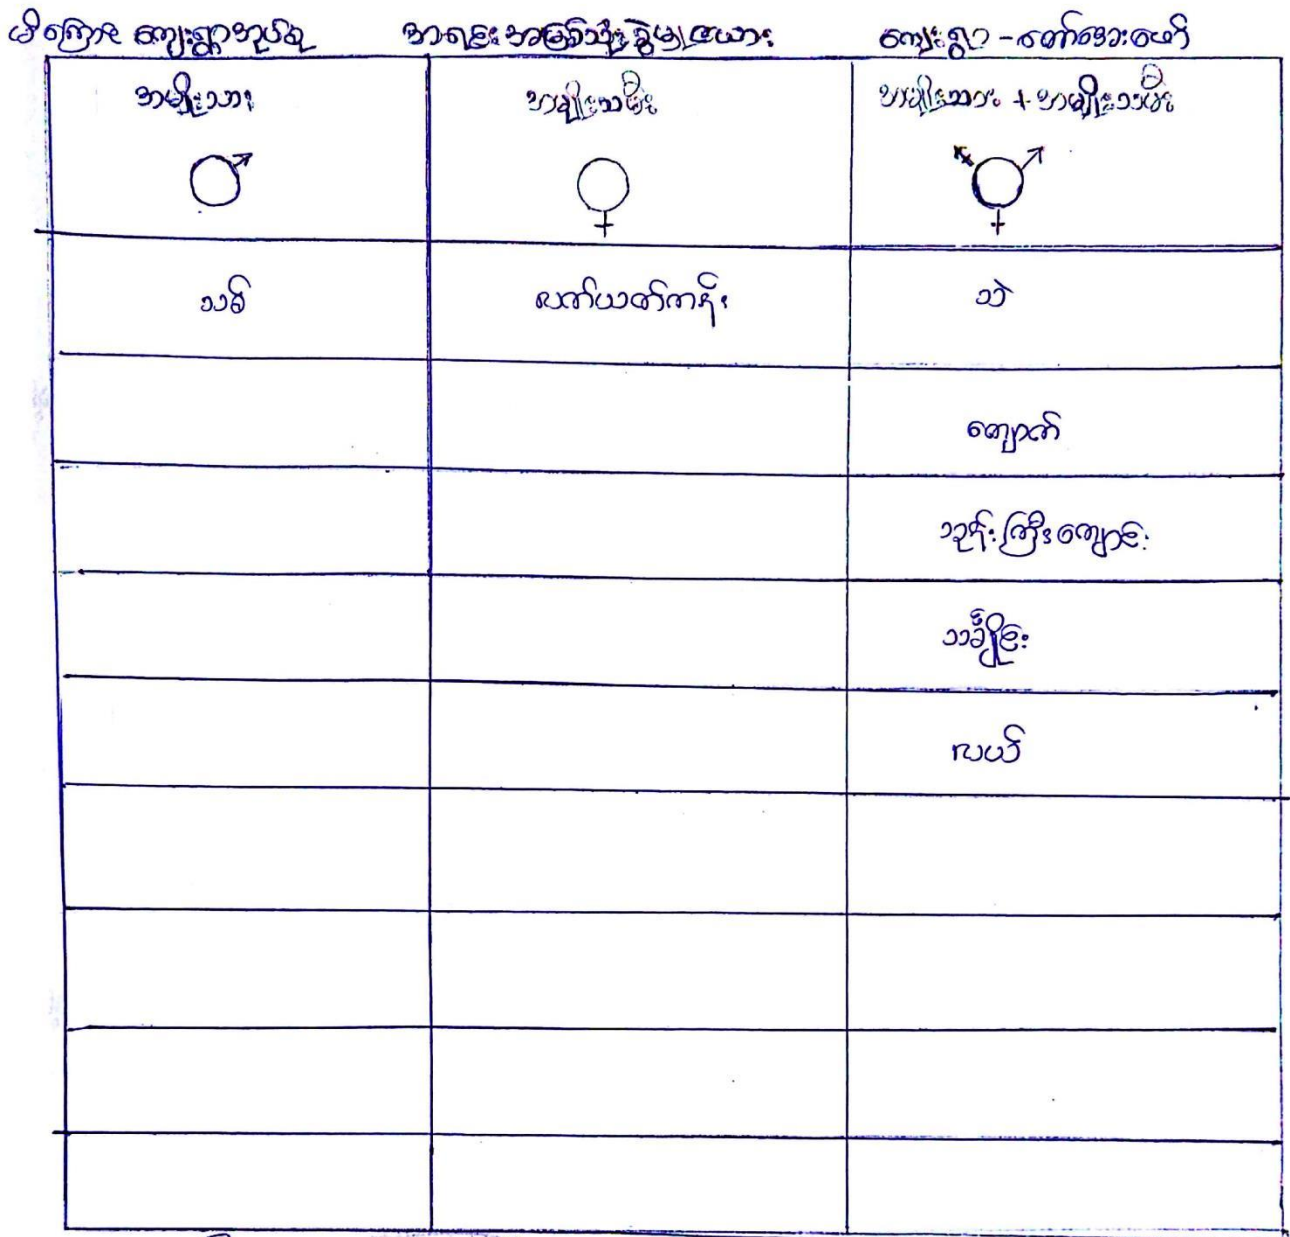 မိကြောင် ကျေးရွာအုပ်စု အရင်းအမြစ်သုံးစွဲမှုဇယား ကျေးရွာ - တော်အေးဖော်
အမျိုးသား အမျိုးသမီး အမျိုးသား + အမျိုးသမီး
သစ် လက်ယက်ကန်း သဲ
ကျောက်
ဘုန်းကြီးကျောင်း
သင်္ချိုင်း
လယ်